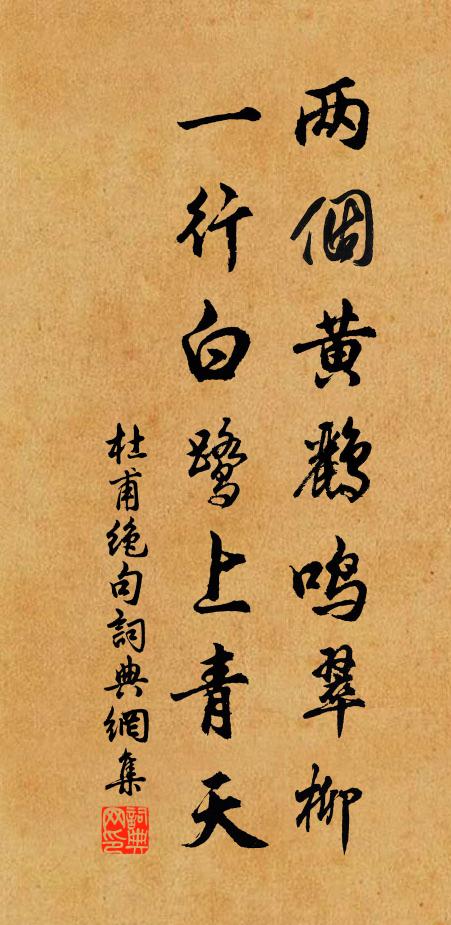 两個黄鸝鳴翠柳
一行白鷺上青天
杜甫絶句詞典網集
詞典网印